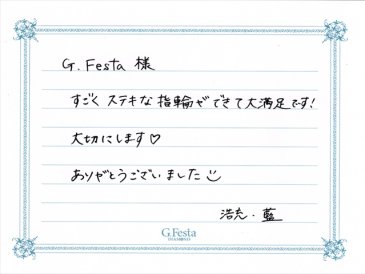 G.Festa 様
すごく ステキな 指輪ができて大満足です!
大切にします♡
ありがとうございました
浩充・藍
G.Festa
DIAMOND